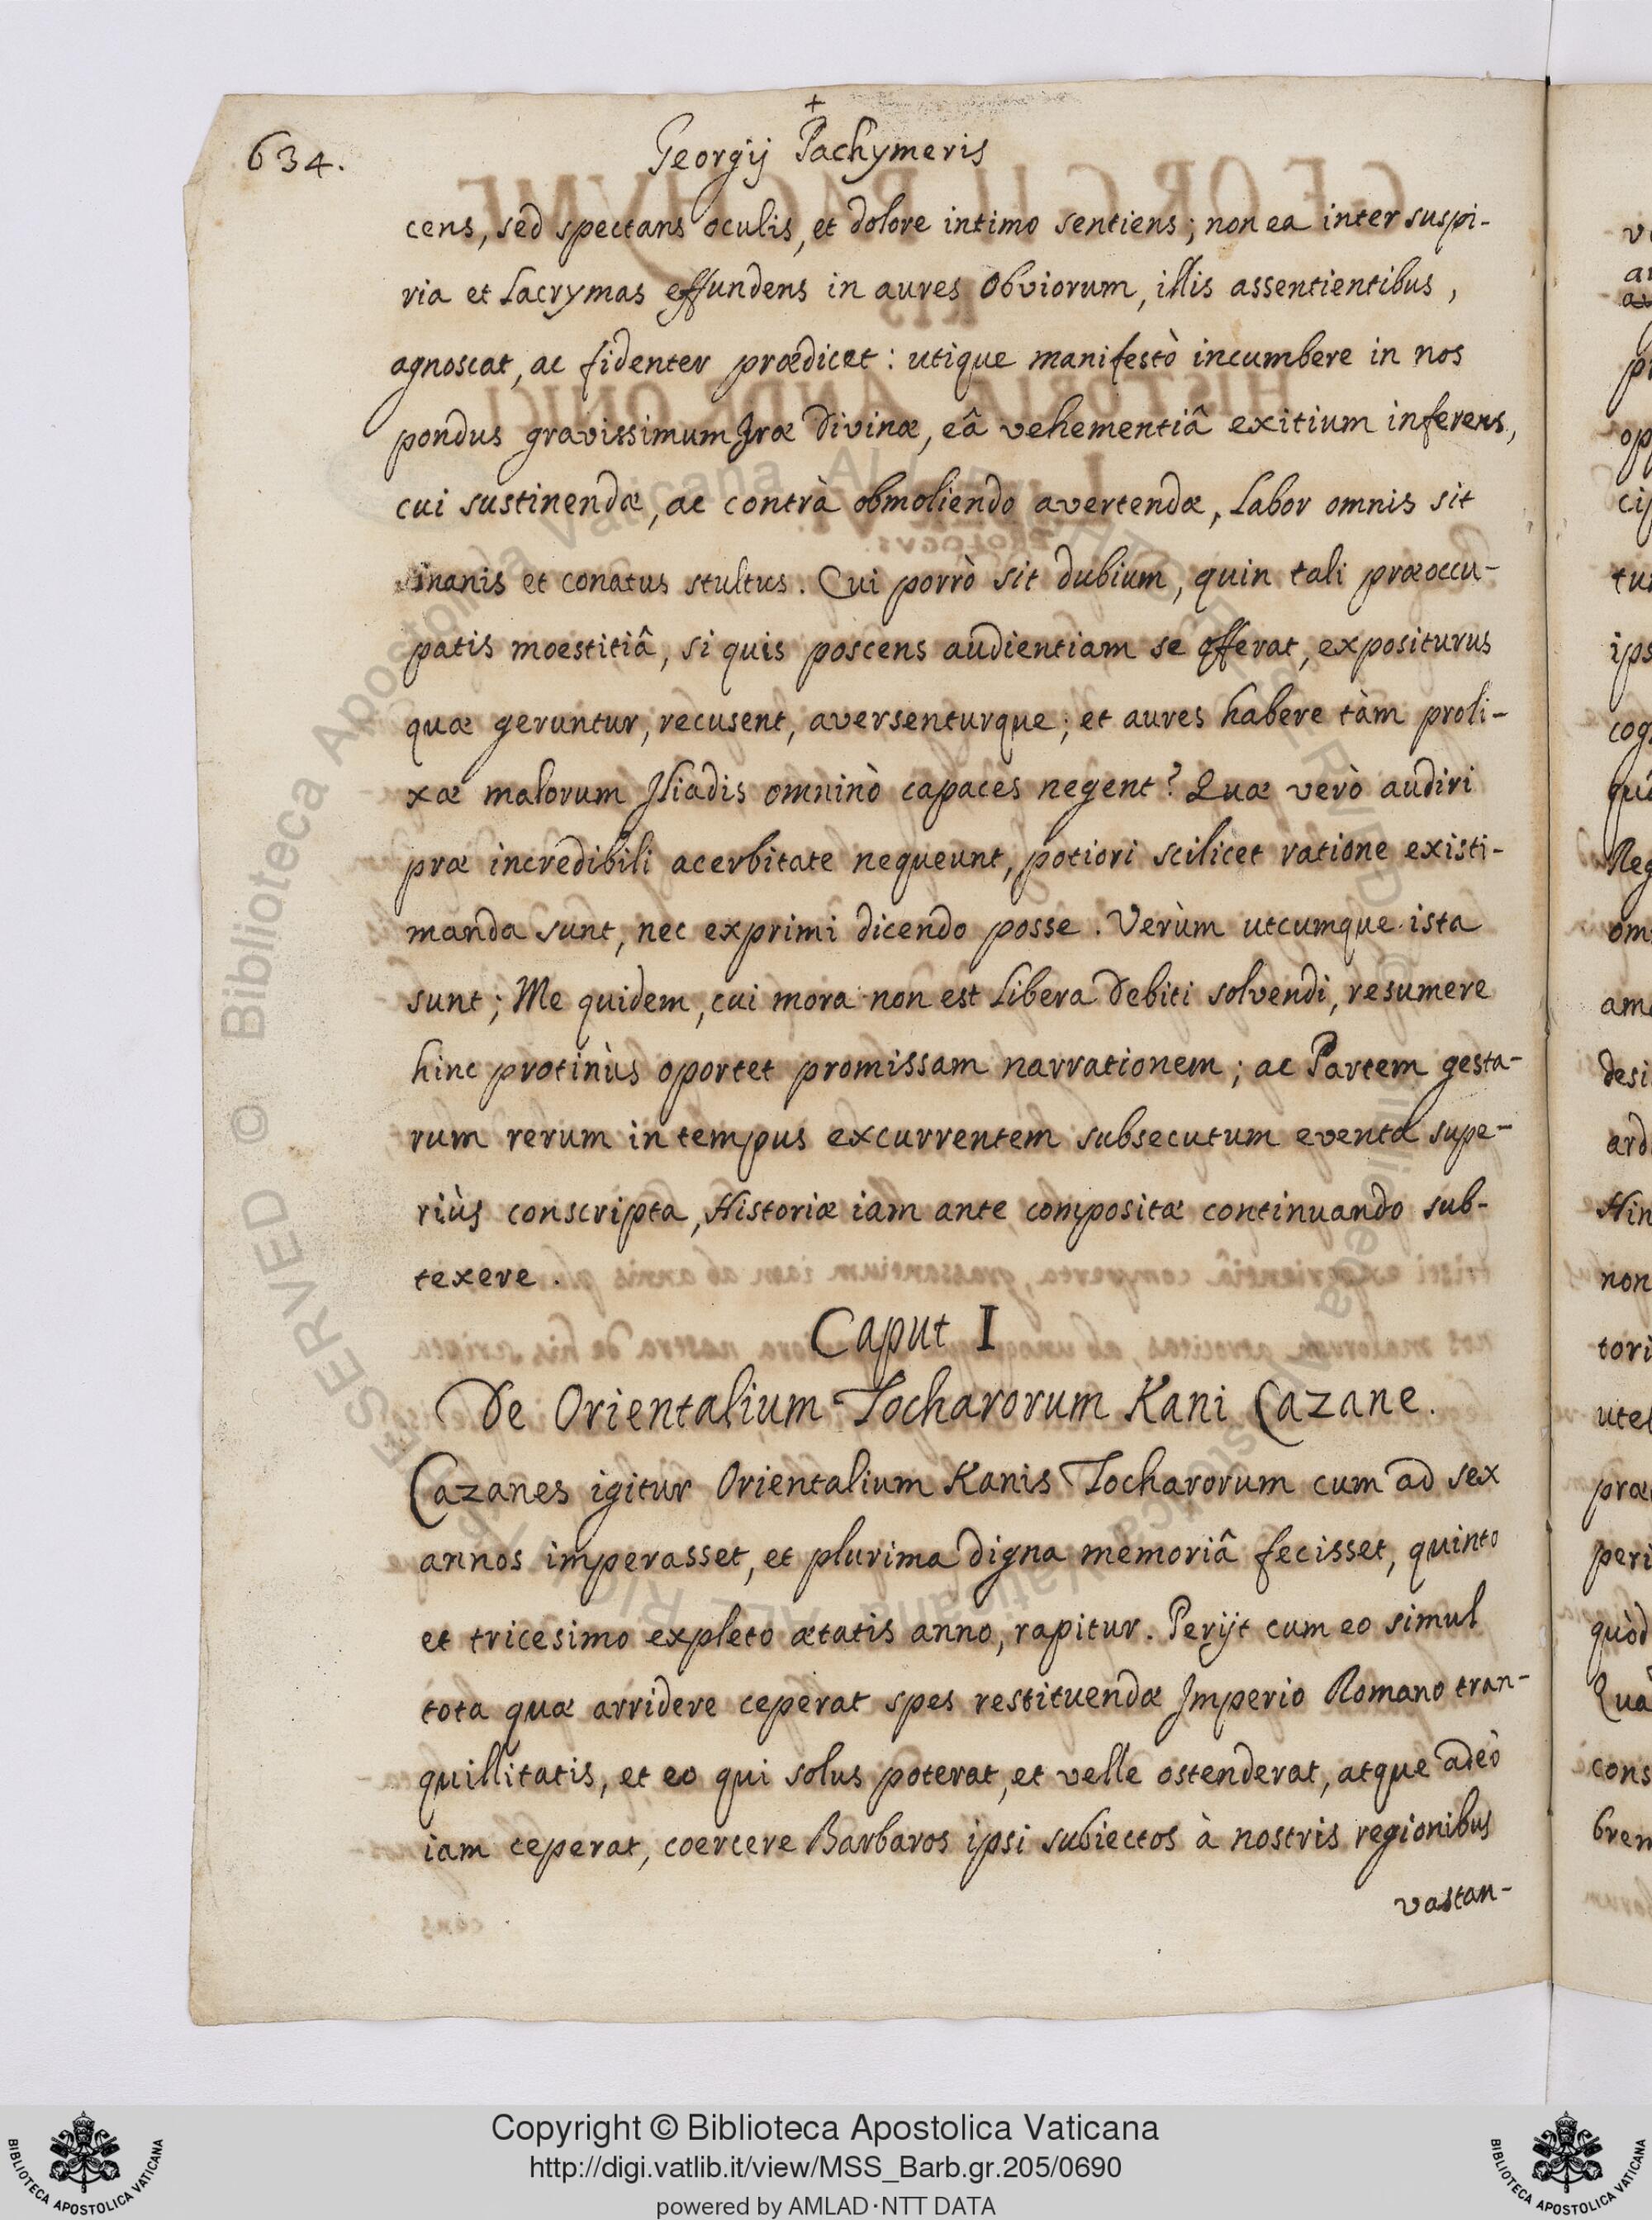 634.
+
Georgij Pachymeris
cens, sed spectans oculis, et dolore intimo sentiens; non ea inter suspi-
ria et Lacrymas effundens in aures obviorum, illis assentientibus,
agnoscat, ac fidenter prædicet: utique manifestò incumbere in nos
pondus gravissimum Iræ Divinæ, eâ vehementiâ exitium inferens,
cui sustinendæ, ac contrà obmoliendo avertendæ, Labor omnis sit
inanis et conatus stultus. Cui porrò sit dubium, quin tali præoccu-
patis moestitiâ, si quis poscens audientiam se offerat, expositurus
quæ geruntur, recusent, aversenturque; et aures habere tàm proli-
xæ malorum Iliadis omninò capaces negent? Quæ verò audiri
præ incredibili acerbitate nequeunt, potiori scilicet ratione existi-
manda sunt, nec exprimi dicendo posse. Verùm utcumque ista
sunt; Me quidem, cui mora non est Libera Debiti solvendi, resumere
hinc protinùs oportet promissam narrationem; ac Partem gesta-
rum rerum in tempus excurrentem subsecutum eventa supe-
riùs conscripta, Historiæ iam ante compositæ continuando sub-
texere.
Caput I
De Orientalium Tocharorum Kani Cazane.
Cazanes igitur Orientalium Kanis Tocharorum cum ad sex
annos imperasset, et plurima digna memoriâ fecisset, quinto
et tricesimo expleto ætatis anno, rapitur. Perijt cum eo simul
tota quæ arridere ceperat spes restituendæ Imperio Romano tran-
quillitatis, et eo qui solus poterat, et velle ostenderat, atque adeò
iam ceperat, coercere Barbaros ipsi subiectos à nostris regionibus
vastan-
Copyright © Biblioteca Apostolica Vaticana
http://digi.vatlib.it/view/MSS_Barb.gr.205/0690
powered by AMLAD·NTT DATA
BIBLIOTECA APOSTOLICA VATICANA
BIBLIOTECA APOSTOLICA VATICANA